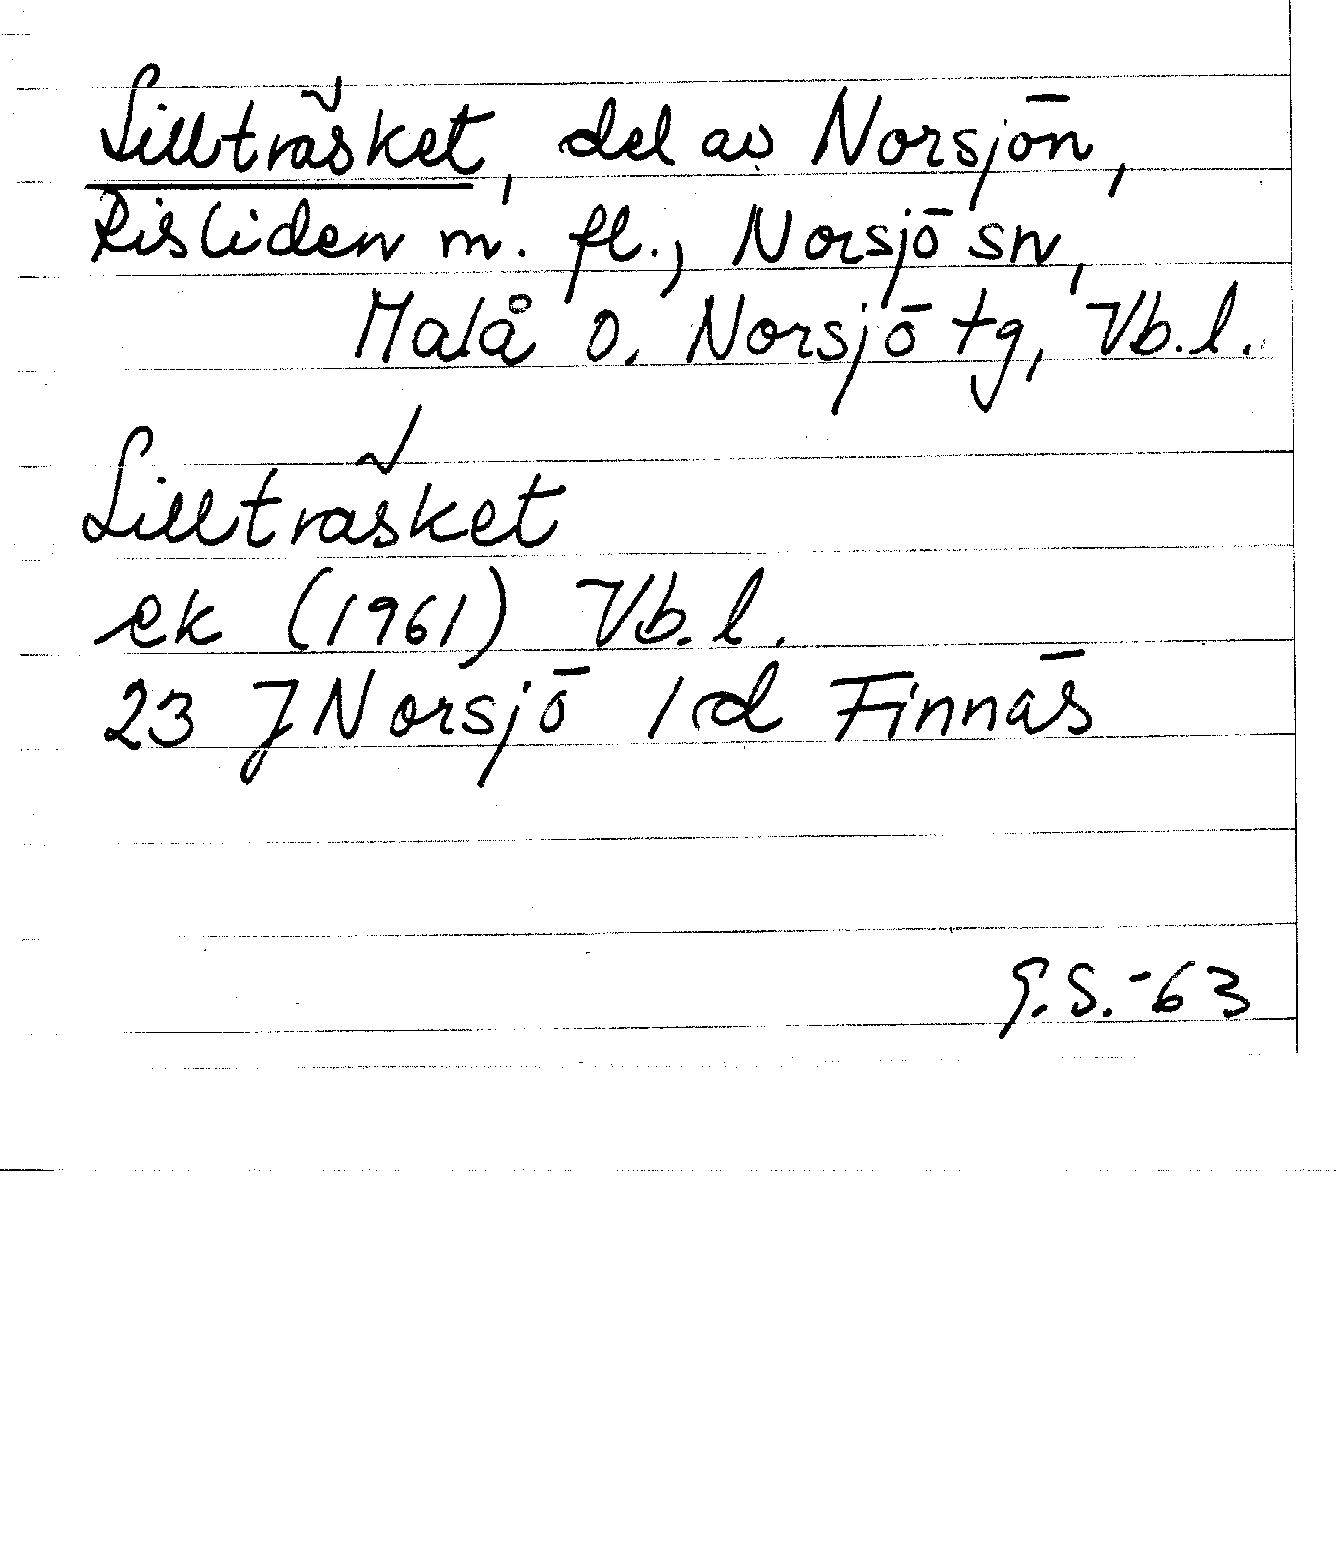 Lillträsket, del av Norsjön,
Risliden m. fl., Norsjö sn,
Malå o. Norsjö tg, Vb. l.
Lillträsket
ek (1961) Vb. l.
23 J Norsjö 1 d Finnäs
G.S.-63